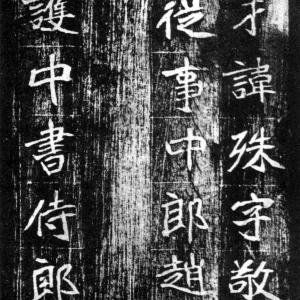 才諱殊字敬
從事中郎趙
護中書侍郎